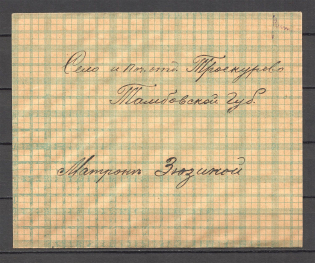 Село и п. отд. Троекурово
Тамбовской Губ.
Матроне Зюзиной